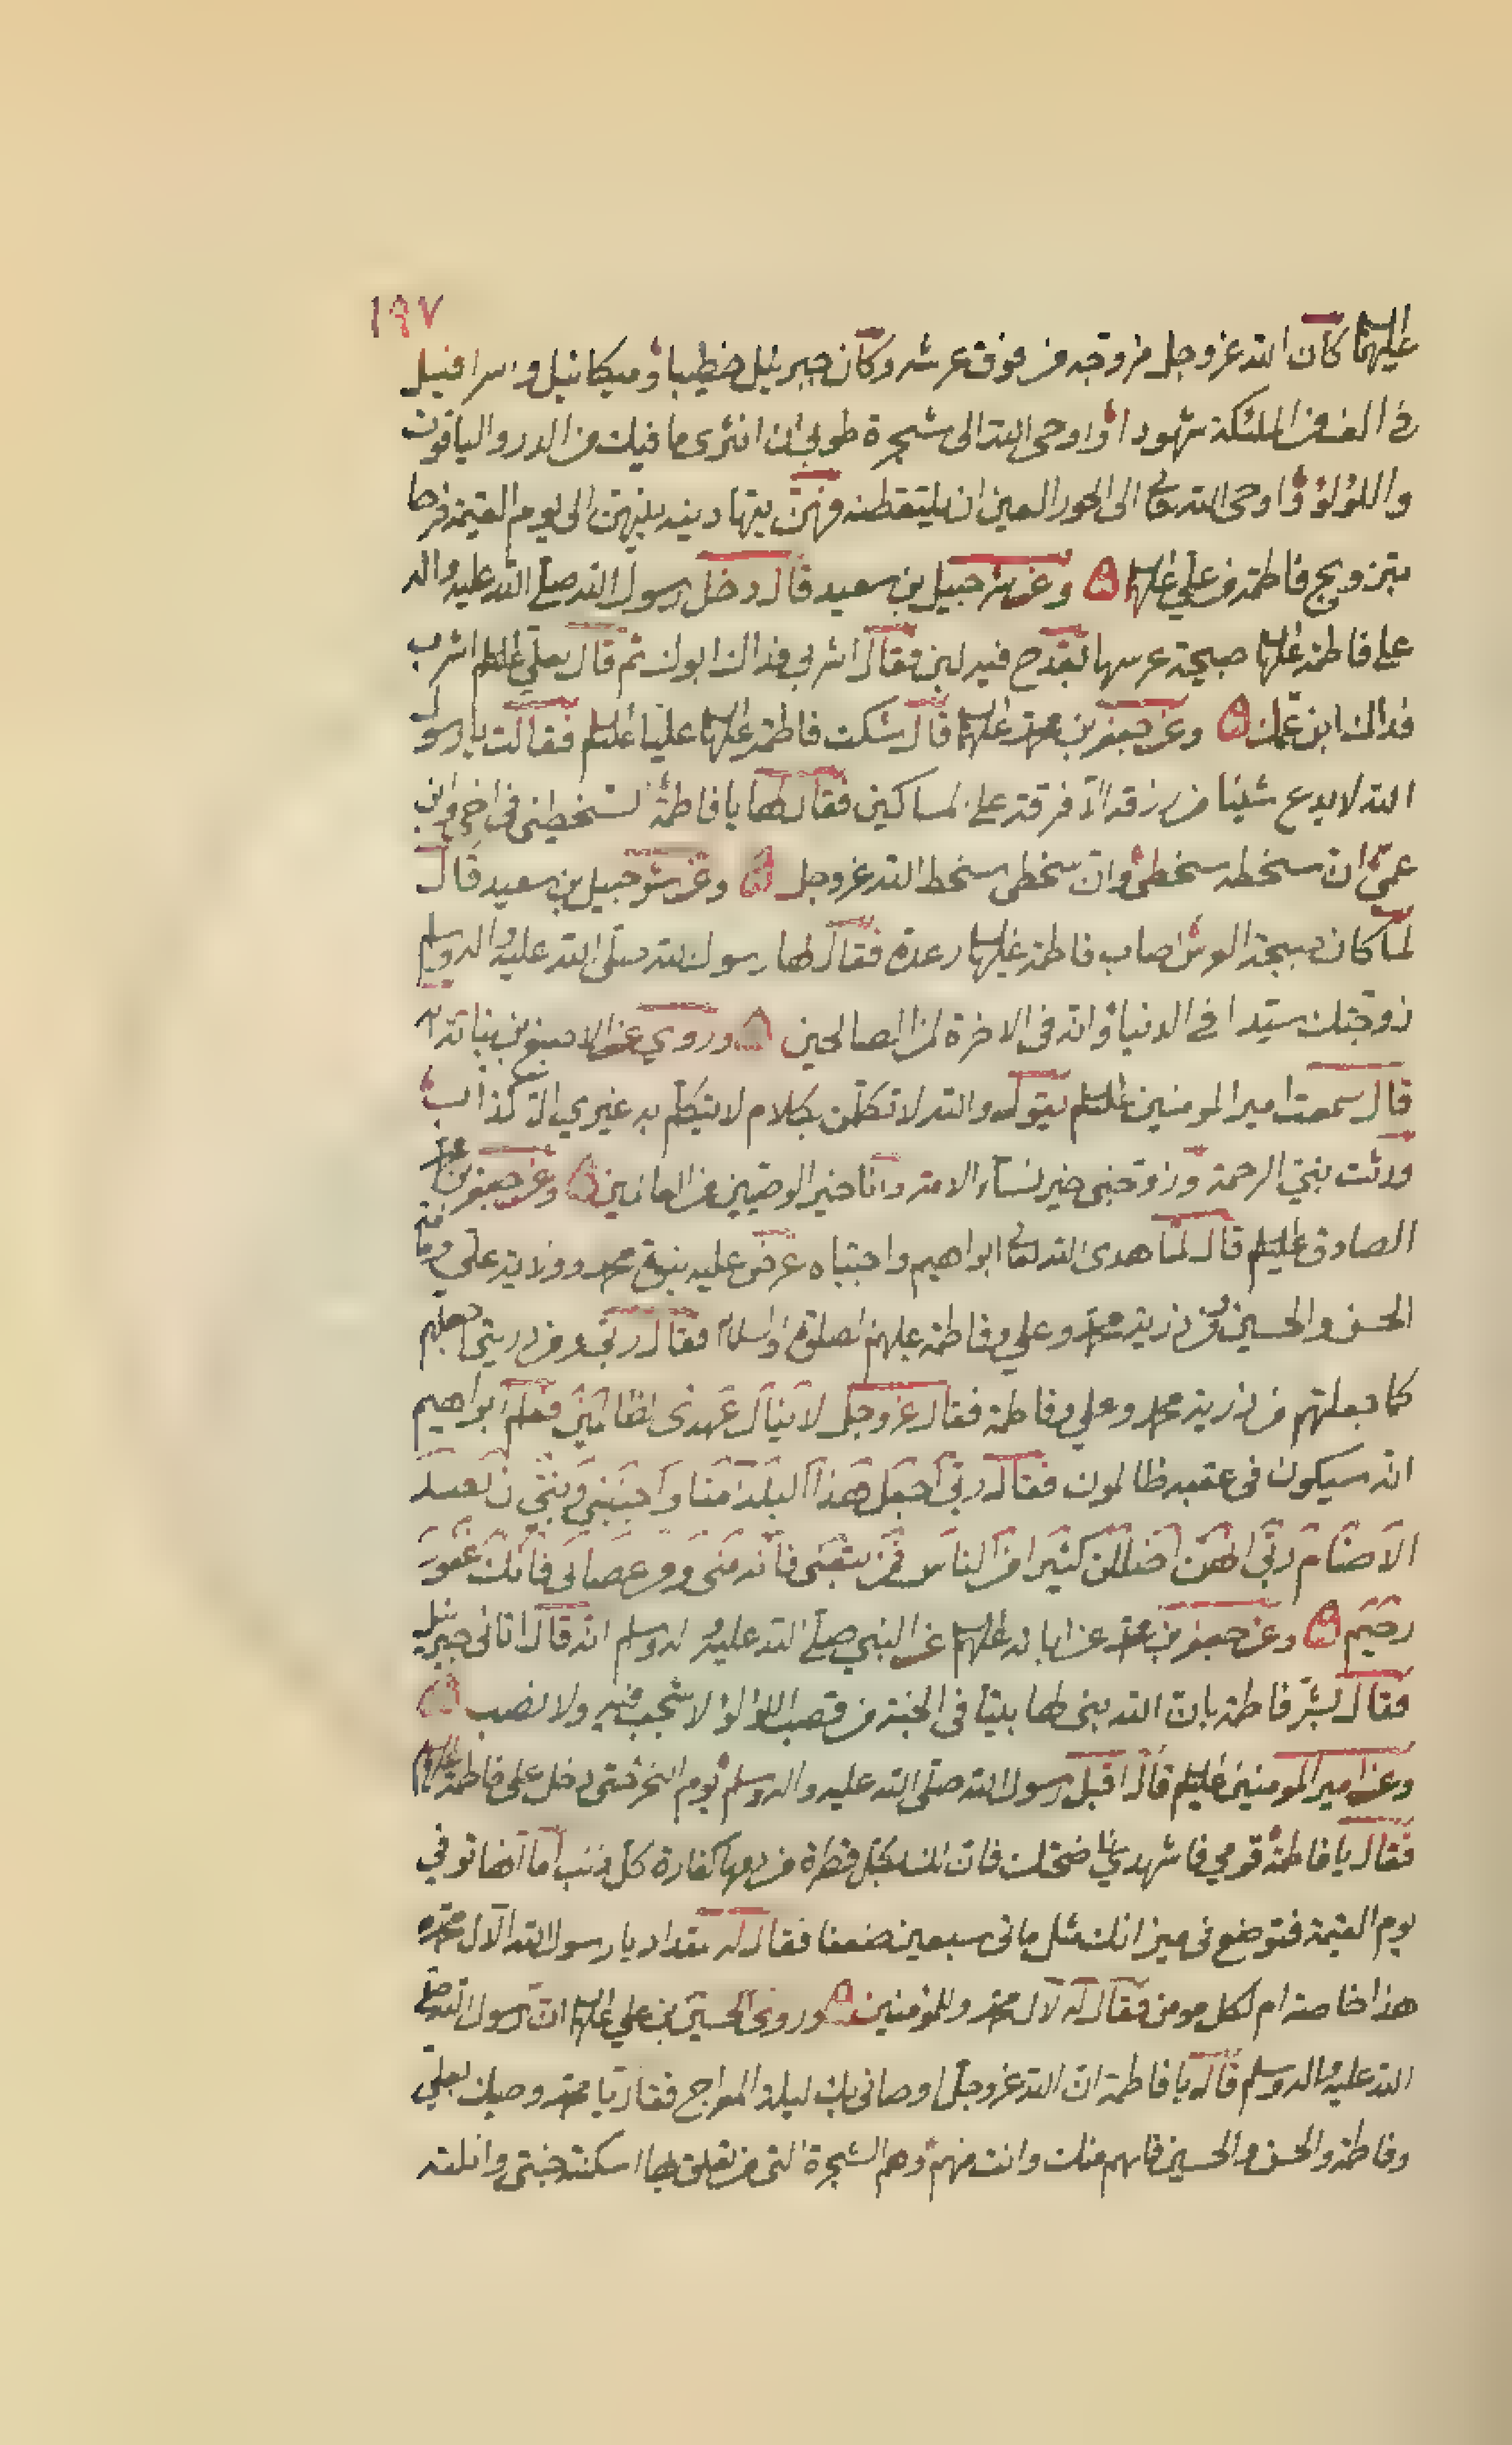 ١٩٧
عليهما السلام كان الله عز وجل مزوجه من فوق عرشه وكان جبرئيل خطيبا وميكائيل واسرافيل
في الف من الملئكة شهودا واوحى الله الى شجرة طوبى ان انثرى ما فيك من الدر والياقوت
واللؤلؤ واوحى الله تعالى الى الحور العين ان يلتقطنه فهن يتهادينه بينهن الى يوم القيمة فرحا
بتزويج فاطمة من علي عليهما السلام وعن شرحبيل بن سعيد قال دخل رسول الله صلى الله عليه واله
على فاطمة عليها السلام صبيحة عرسها بقدح فيه لبن فقال اشربي فداك ابوك ثم قال لعلي عليه السلام اشرب
فداك ابن عمك وعن جعفر بن محمد عليهما السلام قال شكت فاطمة عليها السلام عليا عليه السلام فقالت يا رسول
الله لا يدع شيئا من رزقه الا فرقه على المساكين فقال لها يا فاطمة اتسخطيني في اخي وابن
عمي ان سخطه سخطي وان سخطي سخط الله عز وجل وعن شرحبيل بن سعيد قال
لما كان صبيحة العرس اصاب فاطمة عليها السلام رعدة فقال لها رسول الله صلى الله عليه واله وسلم
زوجتك سيدا في الدنيا وانه في الاخرة لمن الصالحين وروي عن الاصبغ بن نباتة
قال سمعت امير المومنين عليه السلام يقول والله لاتكلمن بكلام لا يتكلم به غيري الا كذاب
ورثت نبي الرحمة وزوجتى خير نساء الامة وانا خير الوصيين وعن جعفر بن محمد
الصادق عليه السلام قال لما هدى الله تعالى ابراهيم واجتباه عرض عليه نبوة محمد وولاية علي وفاطمة
الحسن والحسين من ذرية محمد وعلي وفاطمة عليهم الصلوة والسلام فقال ربي ومن ذريتي اجعلهم
كما جعلتهم من ذرية محمد وعلي وفاطمة فقال عز وجل لا ينال عهدى الظالمين فعلم ابراهيم
انه سيكون في عقبه ظالمون فقال رب اجعل هذا البلد امنا واجنبني وبني ان نعبد
الاصنام رب انهن اضللن كثيرا من الناس فمن تبعني فانه مني ومن عصاني فانك غفور
رحيم وعن جعفر بن محمد عن ابائه عليهم السلام عن النبي صلى الله عليه واله وسلم انه قال اتاني جبرئيل
فقال بشر فاطمة بان الله بنى لها بيتا في الجنة من قصب اللؤلؤ لا صخب فيه ولا نصب
وعن امير المومنين عليه السلام قال اقبل رسول الله صلى الله عليه واله وسلم يوم النحر حتى دخل على فاطمة عليها السلام
فقال يا فاطمة قومي فاشهدي ضحيتك فان لك بكل قطرة من دمها كفارة كل ذنب اما انها توتى
يوم القيمة فتوضع في ميزانك مثل ما في سبعين ضعفا فقال له مقداد يا رسول الله الال محمد
هذا خاصة ام لكل مومن فقال له لال محمد وللمؤمنين وروى الحسين بن علي عليهما السلام ان رسول الله صلى
الله عليه واله وسلم قال يا فاطمة ان الله عز وجل اوصاني بك ليلة المعراج فقال يا محمد وصيك بعلي
وفاطمة والحسن والحسين فانهم منك وانت منهم وهم الشجرة التي من تعلق بها اسكنته جنتي وانلته